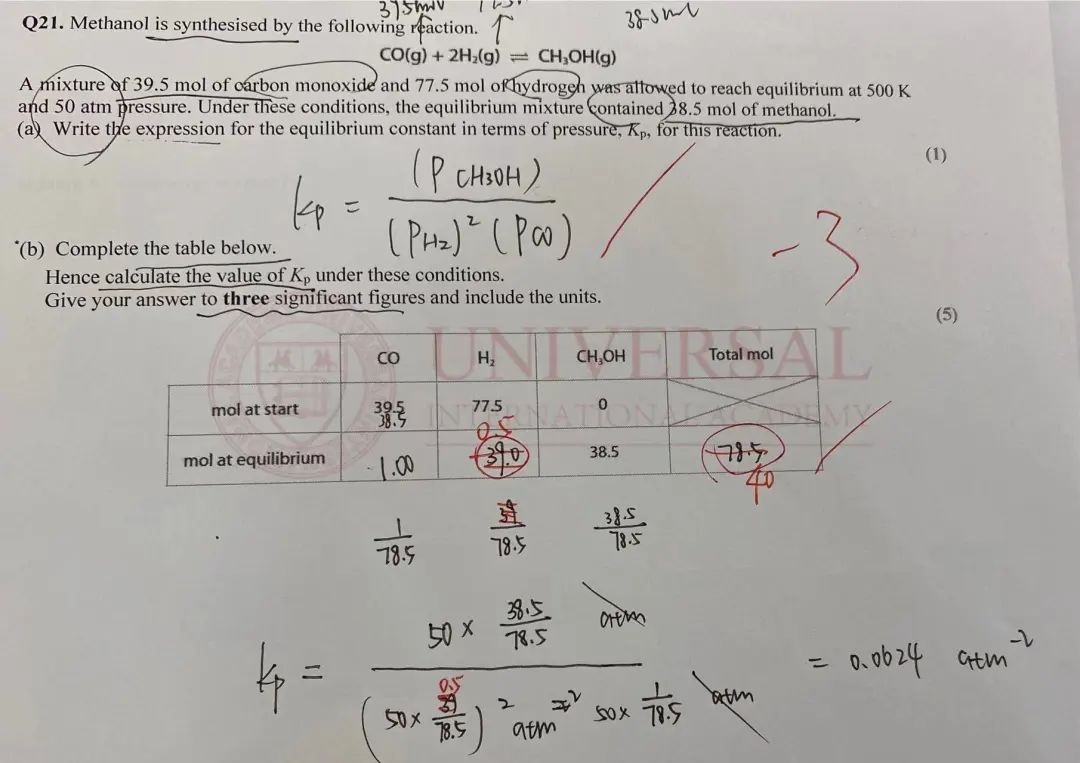 375mol
38.5mol
Q21. Methanol is synthesised by the following reaction.
CO(g) + 2H₂(g) ⇌ CH₃OH(g)
A mixture of 39.5 mol of carbon monoxide and 77.5 mol of hydrogen was allowed to reach equilibrium at 500 K
and 50 atm pressure. Under these conditions, the equilibrium mixture contained 38.5 mol of methanol.
(a) Write the expression for the equilibrium constant in terms of pressure, Kₚ, for this reaction.
(1)
kp = (P CH3OH) / (PH₂)² (PCO)
-3
*(b) Complete the table below.
Hence calculate the value of Kₚ under these conditions.
Give your answer to three significant figures and include the units.
(5)
UNIVERSAL
INTERNATIONAL ACADEMY
CO H₂ CH₃OH Total mol
mol at start 39.5 77.5 0
38.5 0.5
mol at equilibrium 1.00 39.0 38.5 78.5
40
1/78.5 39/78.5 38.5/78.5
kp = 50 × 38.5/78.5 atm / (50 × 39/78.5)² atm² 50 × 1/78.5 atm = 0.0624 atm⁻²
0.5